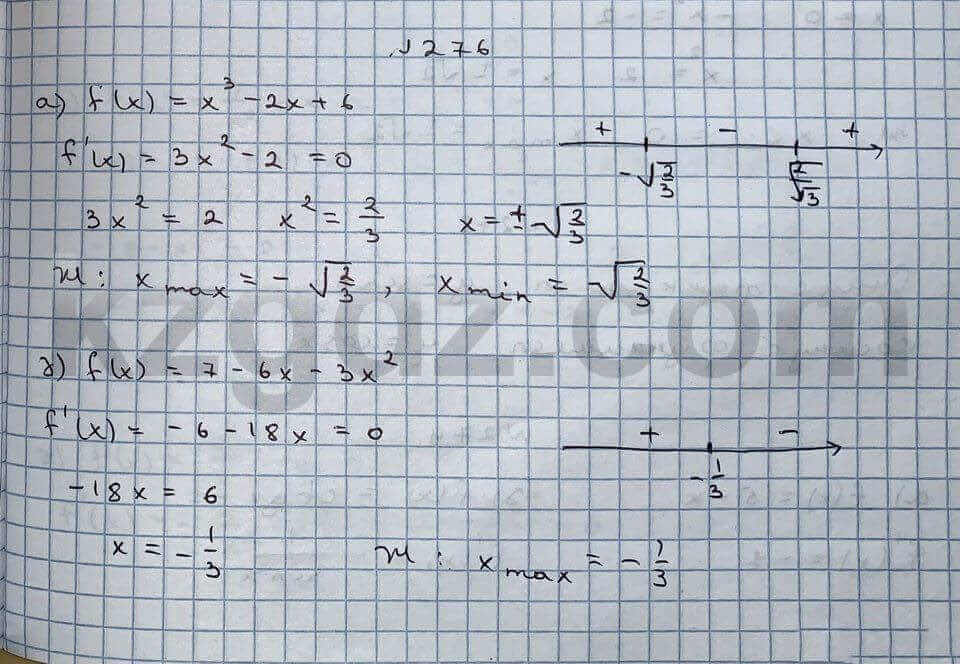 № 276
a) f(x) = x³ - 2x + 6
+ - +
f'(x) = 3x² - 2 = 0
-√2/3 √2/3
3x² = 2 x² = 2/3 x = ± √2/3
ж: x max = - √2/3, x min = √2/3
kzgdz.com
д) f(x) = 7 - 6x - 3x²
f'(x) = - 6 - 18x = 0
+ -
-1/3
-18x = 6
x = - 1/3
ж: x max = - 1/3